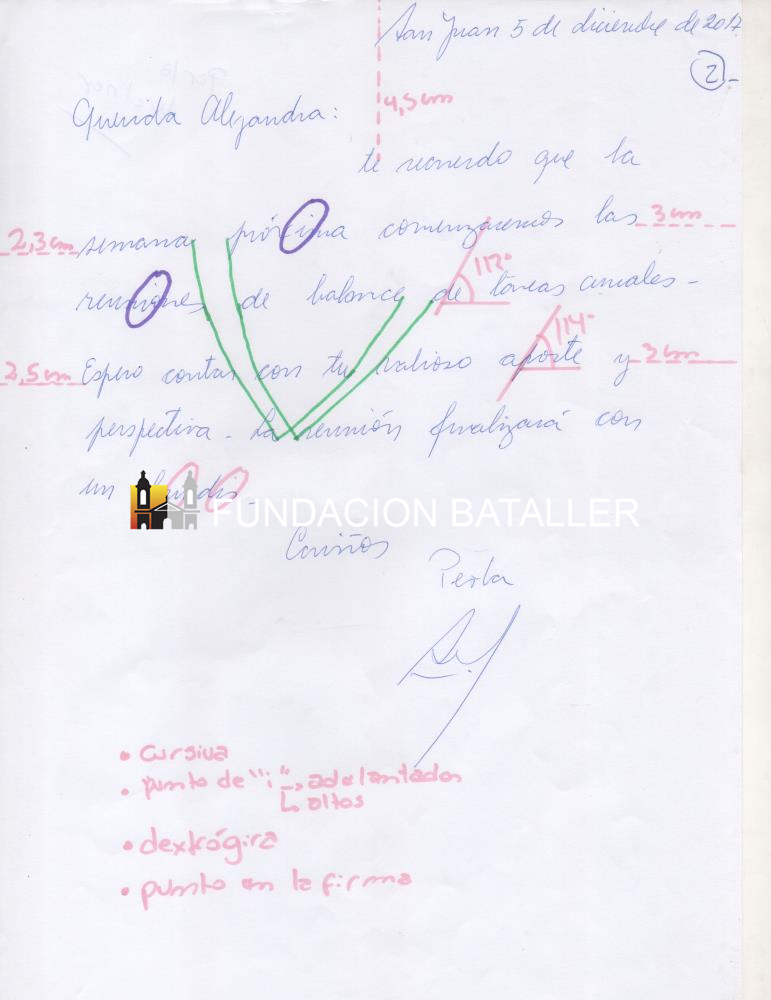 San Juan 5 de diciembre de 2017
2-
4,5cm
Querida Alejandra:
te recuerdo que la
2,3cm semana próxima comenzaremos las 3cm
reuniones de balance de tareas anuales-
112°
114°
2,5cm Espero contar con tu valioso aporte y 3cm
perspectiva- La reunión finalizará con
un
FUNDACION BATALLER
Cariños
Perla
• cursiva
• punto de "i" → adelantados
↳ altos
• dextrógira
• punto en la firma